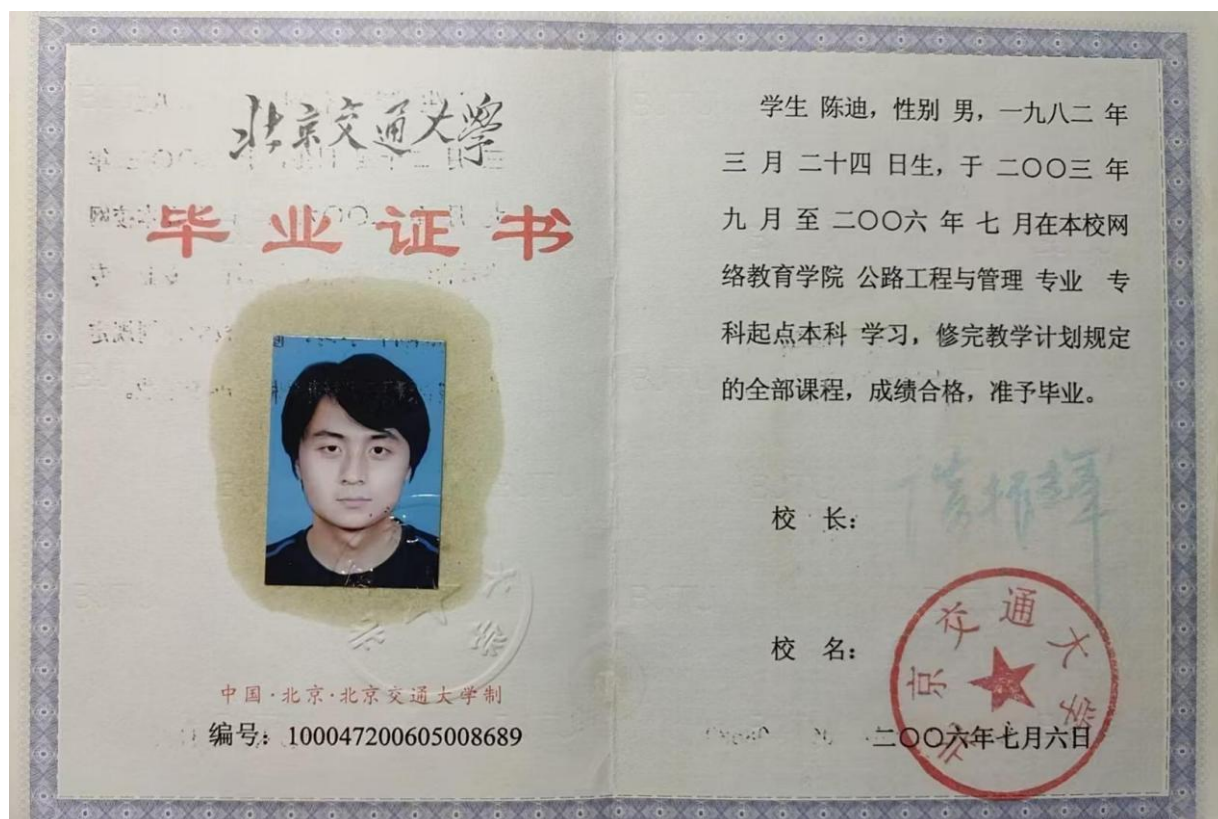 北京交通大学
毕业证书
中国·北京·北京交通大学制
编号：100047200605008689
学生 陈迪，性别 男，一九八二 年
三 月 二十四 日生，于 二〇〇三 年
九 月 至 二〇〇六 年 七 月在本校网
络教育学院 公路工程与管理 专业 专
科起点本科 学习，修完教学计划规定
的全部课程，成绩合格，准予毕业。
校 长：
校 名：
北京交通大学
二〇〇六年七月六日